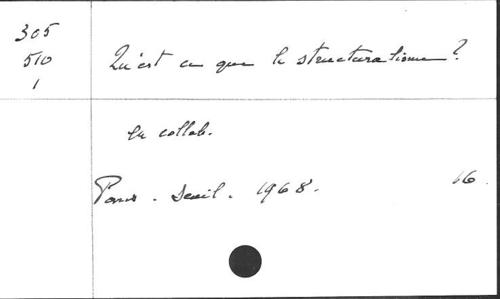 305
510
1
Qu'est ce que le structuralisme?
en collab.
Paris. Seuil. 1968.
16.